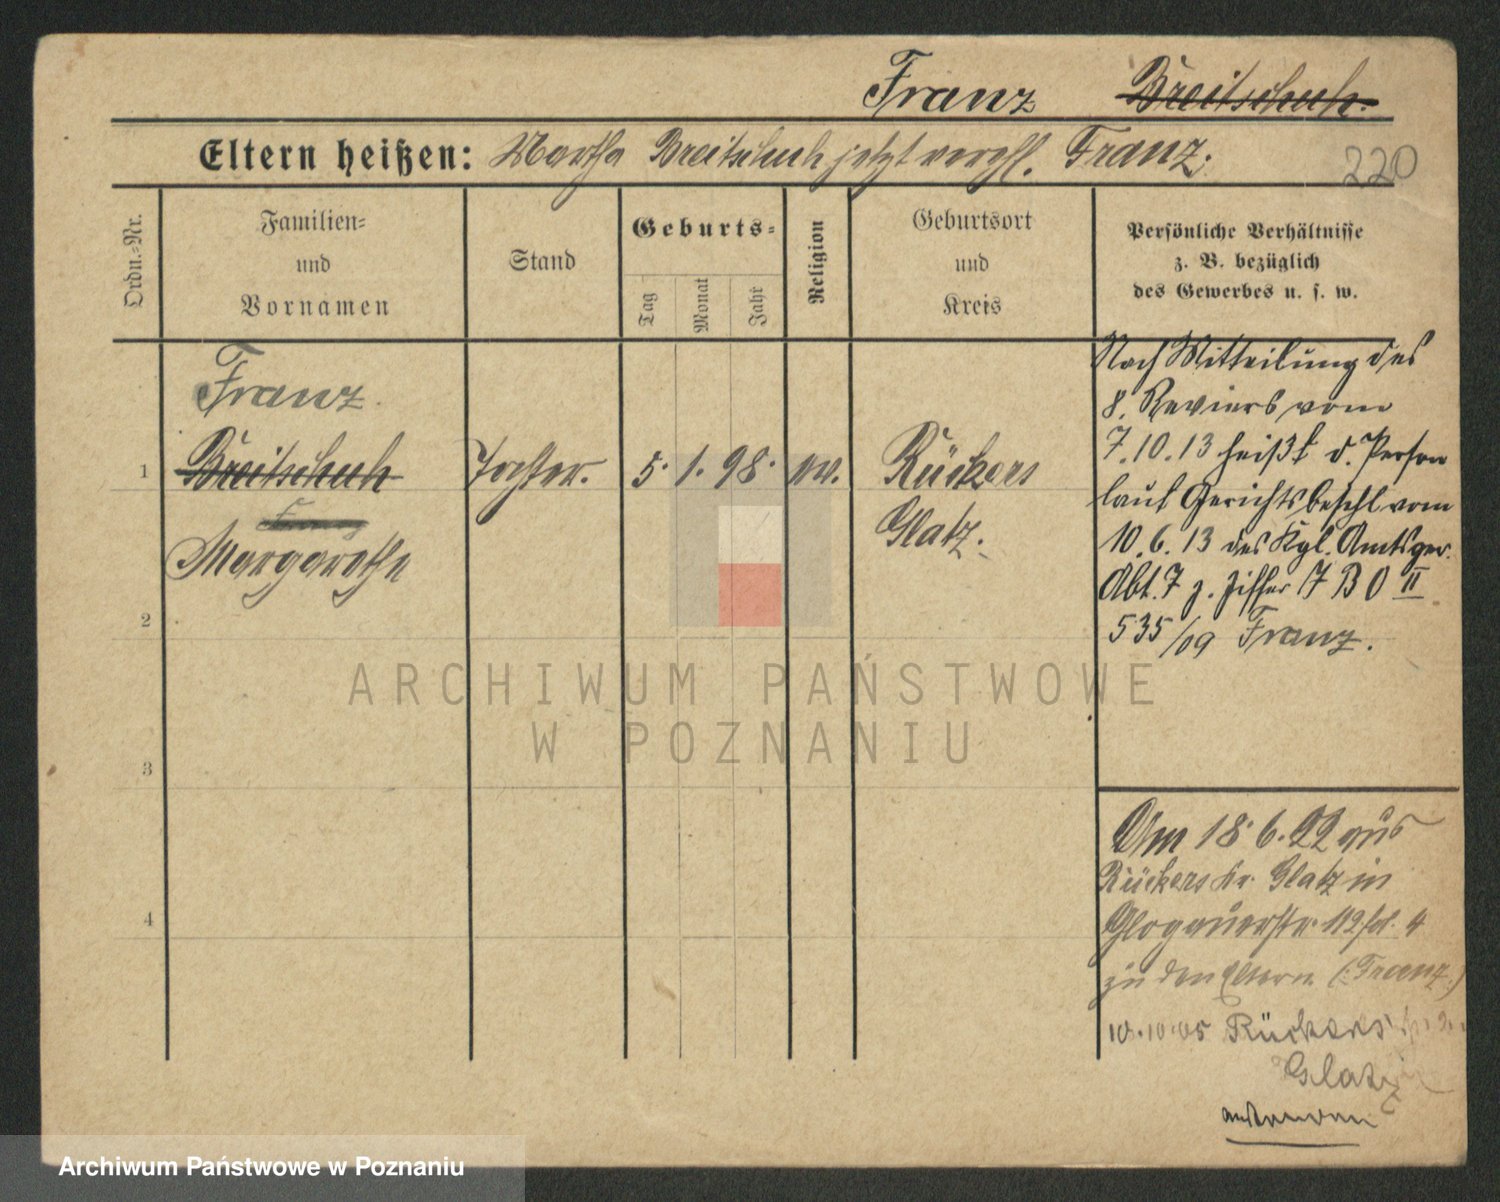 Franz Breitschuh.
Eltern heißen: Martha Breitschuh jetzt verehl. Franz.
220
Ordn.-Nr.
Familien-
und
Vornamen
Stand
Geburts-
Tag
Monat
Jahr
Religion
Geburtsort
und
Kreis
Persönliche Verhältnisse
z. B. bezüglich
des Gewerbes u. s. w.
Franz
1 Breitschuh Tochter. 5. 1. 98. ev. Rückers
Glatz.
Margarethe
2
3
4
Nach Mitteilung des
8. Reviers vom
7.10.13 heißt d. Person
laut Gerichtsbeschl. vom
10.6.13 des Kgl. Amtsger.
Abt. 7 z. Ziffer 17 B O II
535/09 Franz.
Am 18.6. aus
Rückers Kr. Glatz in
Glogauerstr. 112 4
zu den Eltern (Franz.)
10.10.05 Rückers
Glatz
ARCHIWUM PAŃSTWOWE
W POZNANIU
Archiwum Państwowe w Poznaniu